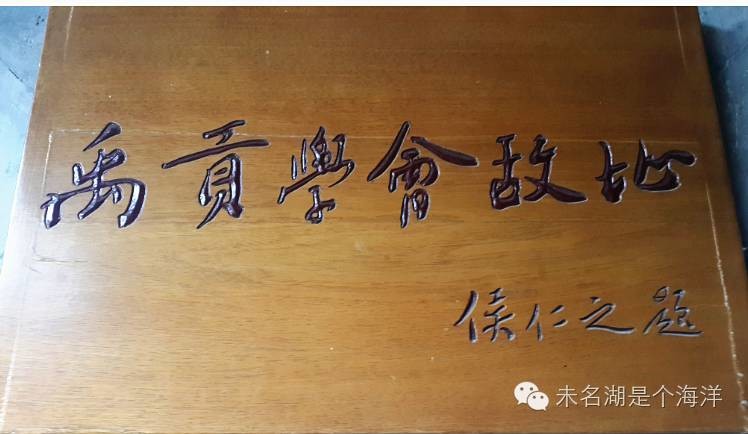 禹貢學會故址
侯仁之題
未名湖是个海洋